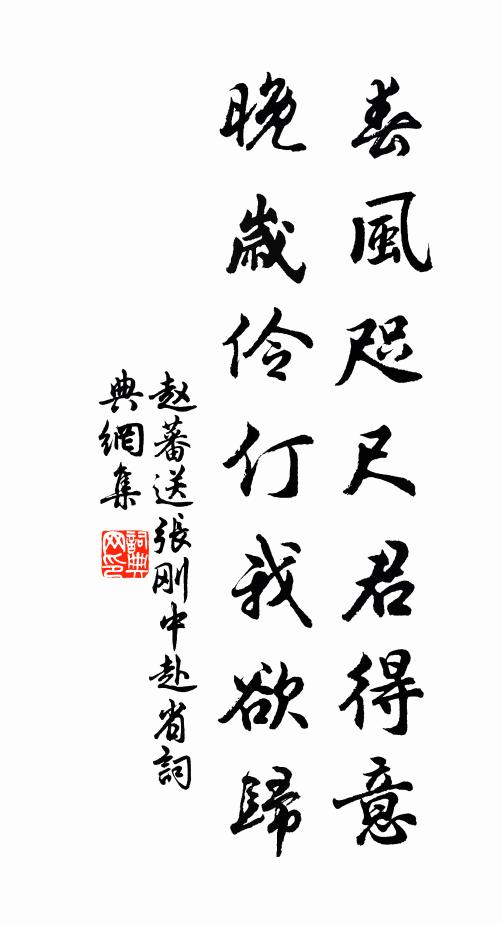 春風咫尺君得意
晚歲伶仃我欲歸
赵蕃送張刚中赴省詞
典網集
詞典
网印